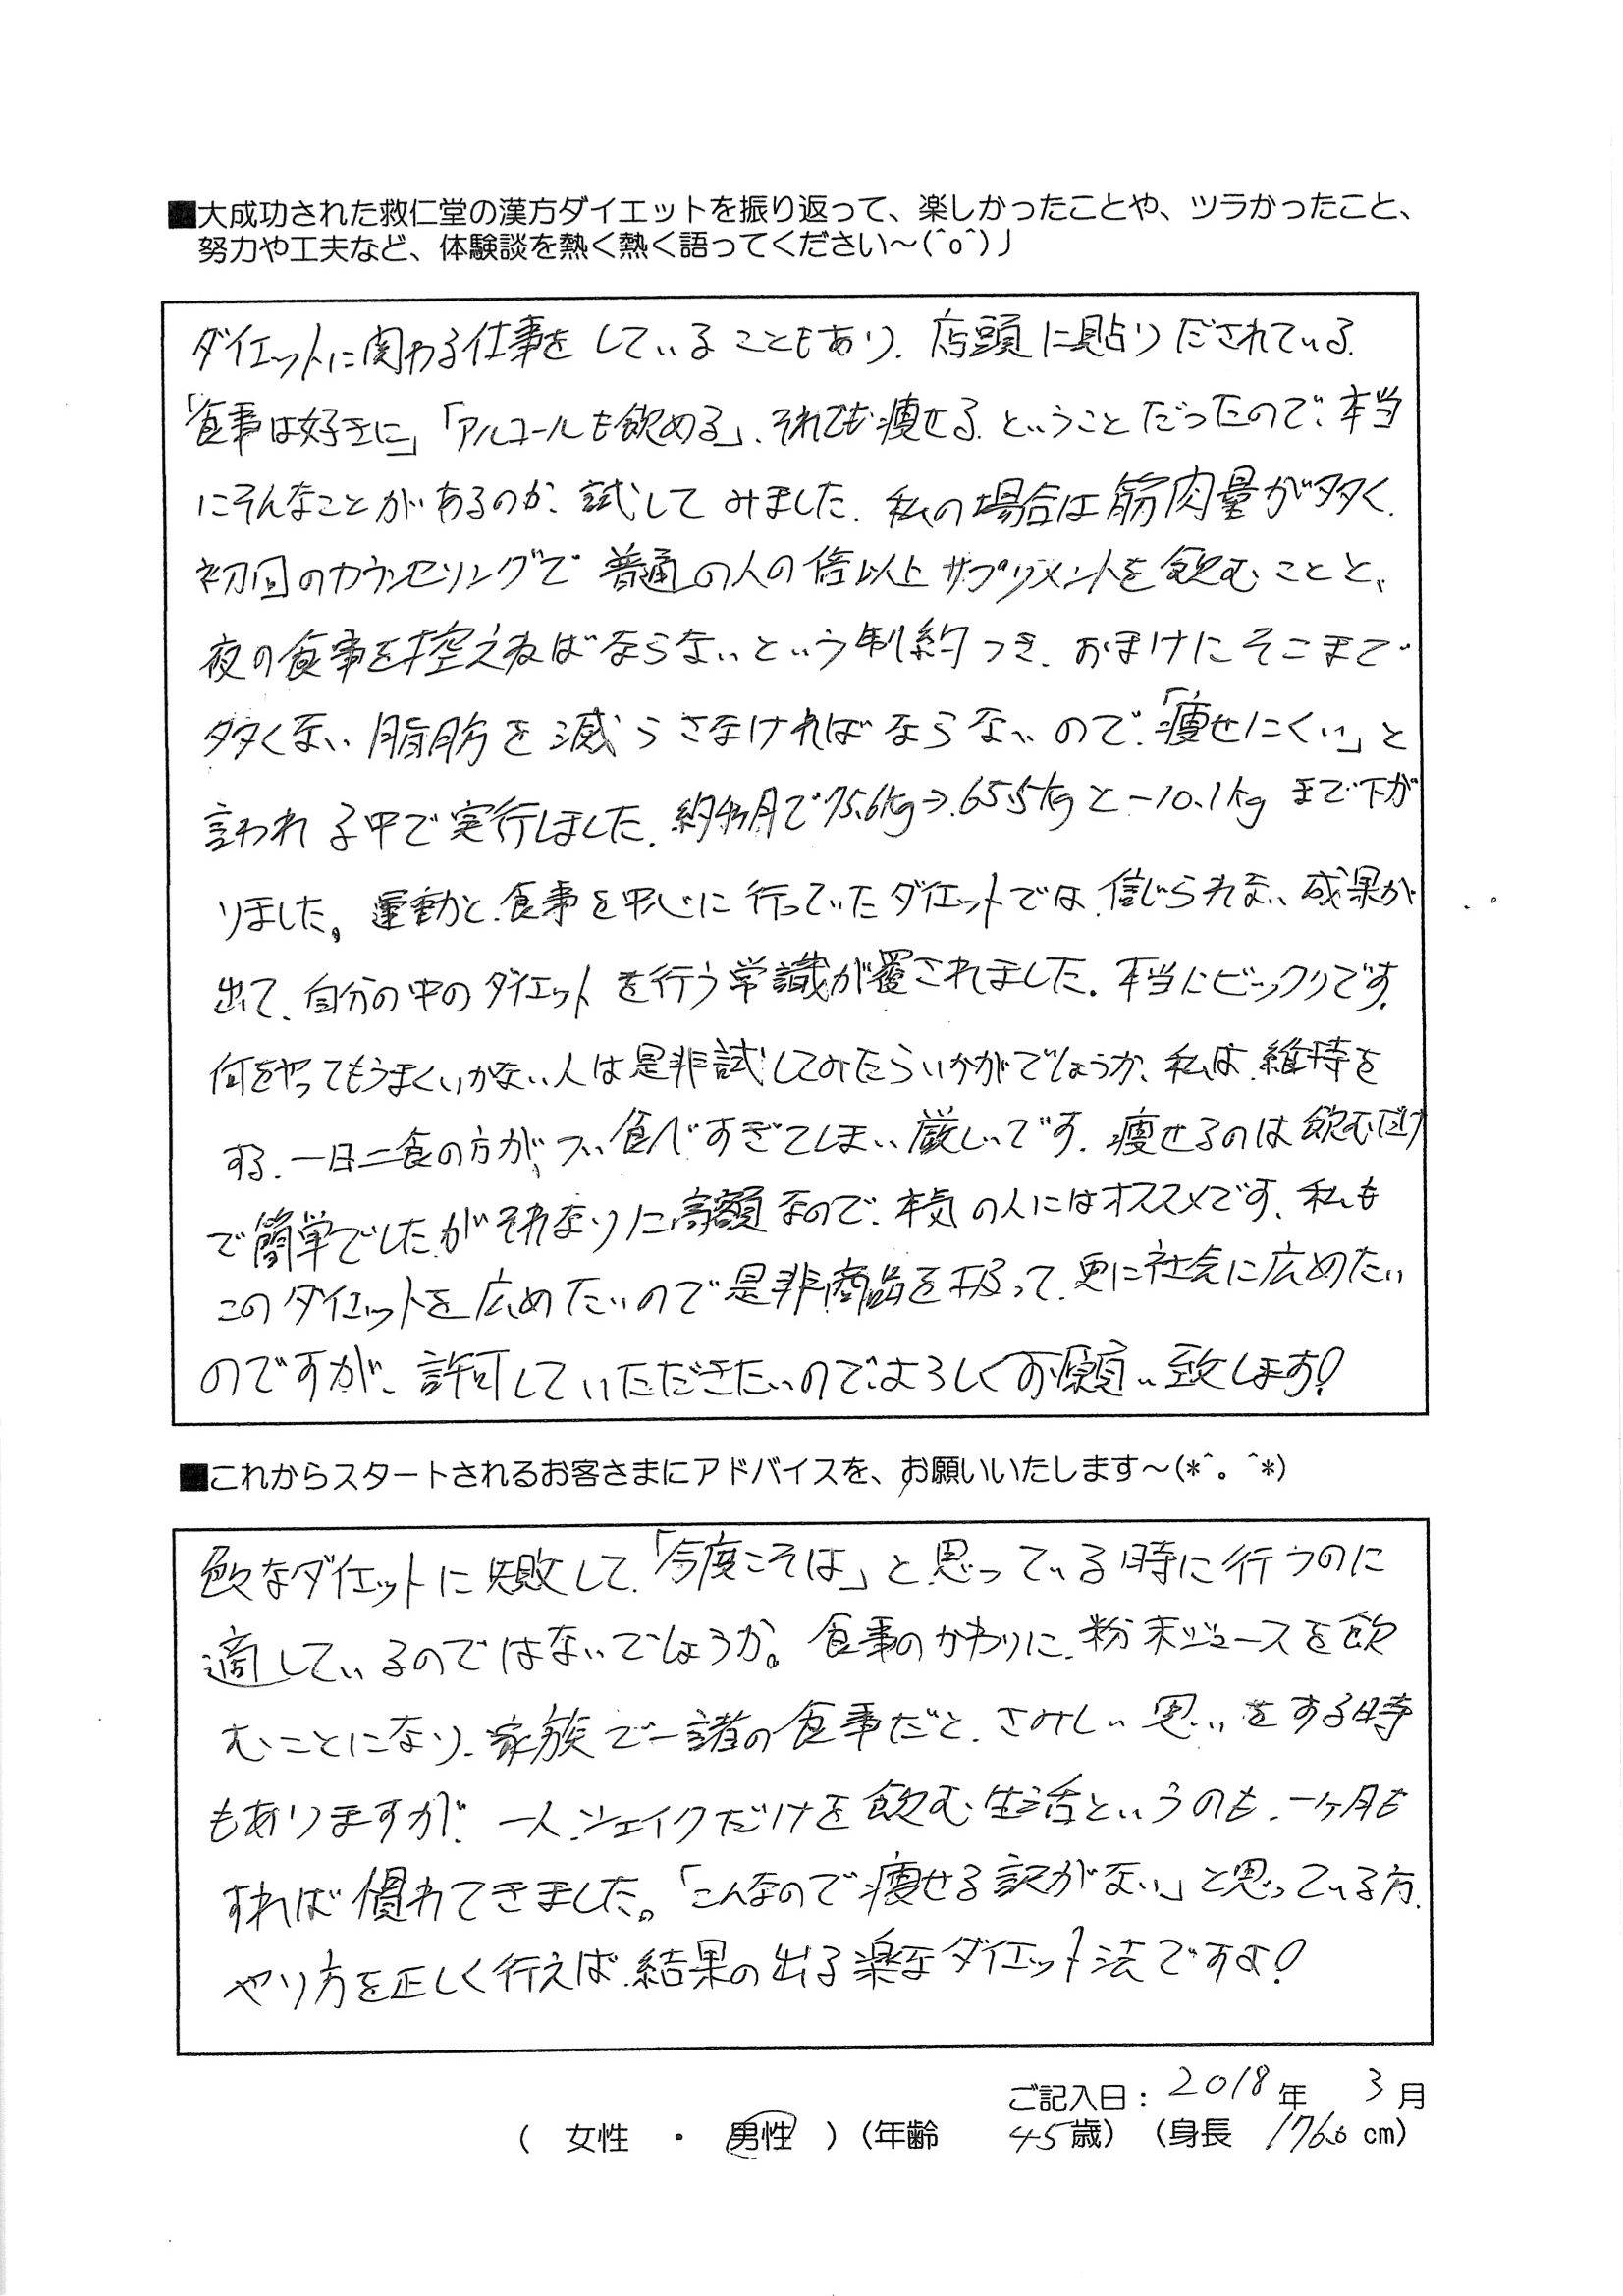 ■大成功された救仁堂の漢方ダイエットを振り返って、楽しかったことや、ツラかったこと、
努力や工夫など、体験談を熱く熱く語ってください～(^o^)丿
ダイエットに関わる仕事をしていることもあり、店頭に貼りだされている、
「食事は好きに」「アルコールも飲める」、それでも痩せる、ということだったので、本当
にそんなことがあるのか、試してみました。私の場合は筋肉量が多く、
初回のカウンセリングで普通の人の倍以上サプリメントを飲むことと、
夜の食事を控えねばならないという制約つき、おまけにそこまで
多くない脂肪を減らさなければならないので、「痩せにくい」と
言われる中で実行しました。約4ヶ月で75.6kg→65.5kgと-10.1kgまで下が
りました。運動と、食事を中心に行っていたダイエットでは、信じられない成果が
出て、自分の中のダイエットを行う常識が覆されました。本当にビックリです。
何をやってもうまくいかない人は是非試してみたらいかがでしょうか、私は、維持を
する、一日二食の方が、つい食べすぎてしまい厳しいです。痩せるのは飲むだけ
で簡単でしたがそれなりに高額なので、本気の人にはオススメです、私も
このダイエットを広めたいので是非商品を扱って、更に社会に広めたい
のですが、許可していただきたいので、よろしくお願い致します!
■これからスタートされるお客さまにアドバイスを、お願いいたします～(*^。^*)
色々なダイエットに失敗して、「今度こそは」と思っている時に行うのに
適しているのではないでしょうか。食事のかわりに、粉末ジュースを飲
むことになり、家族で一諸の食事だと、さみしい思いをする時
もありますが、一人、シェイクだけを飲む生活というのも、一ヶ月も
すれば慣れてきました。「こんなので痩せる訳がない」と思っている方、
やり方を正しく行えば、結果の出る楽なダイエット法ですよ!
ご記入日: 2018年 3月
( 女性 ・ 男性 )(年齢 45歳) (身長 176.6cm)